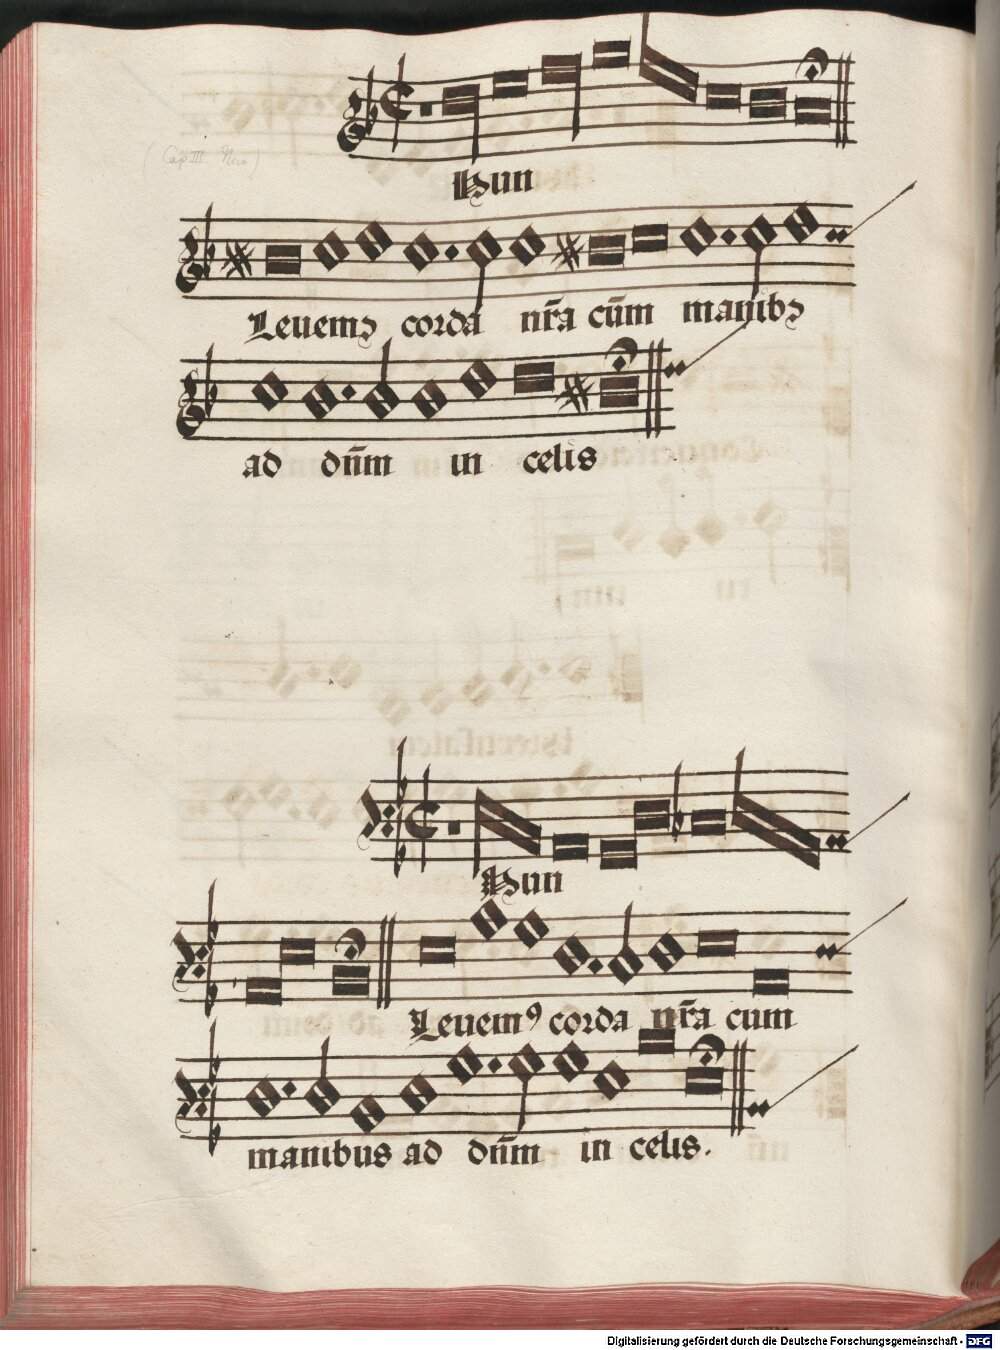 (Cap III. Nun)
Nun
Leuemꝯ corda nr̄a cūm manibꝫ
ad dn̄m in celis
Nun
Leuemꝯ corda nr̄a cum
manibus ad dn̄m in celis.
Digitalisierung gefördert durch die Deutsche Forschungsgemeinschaft - DFG